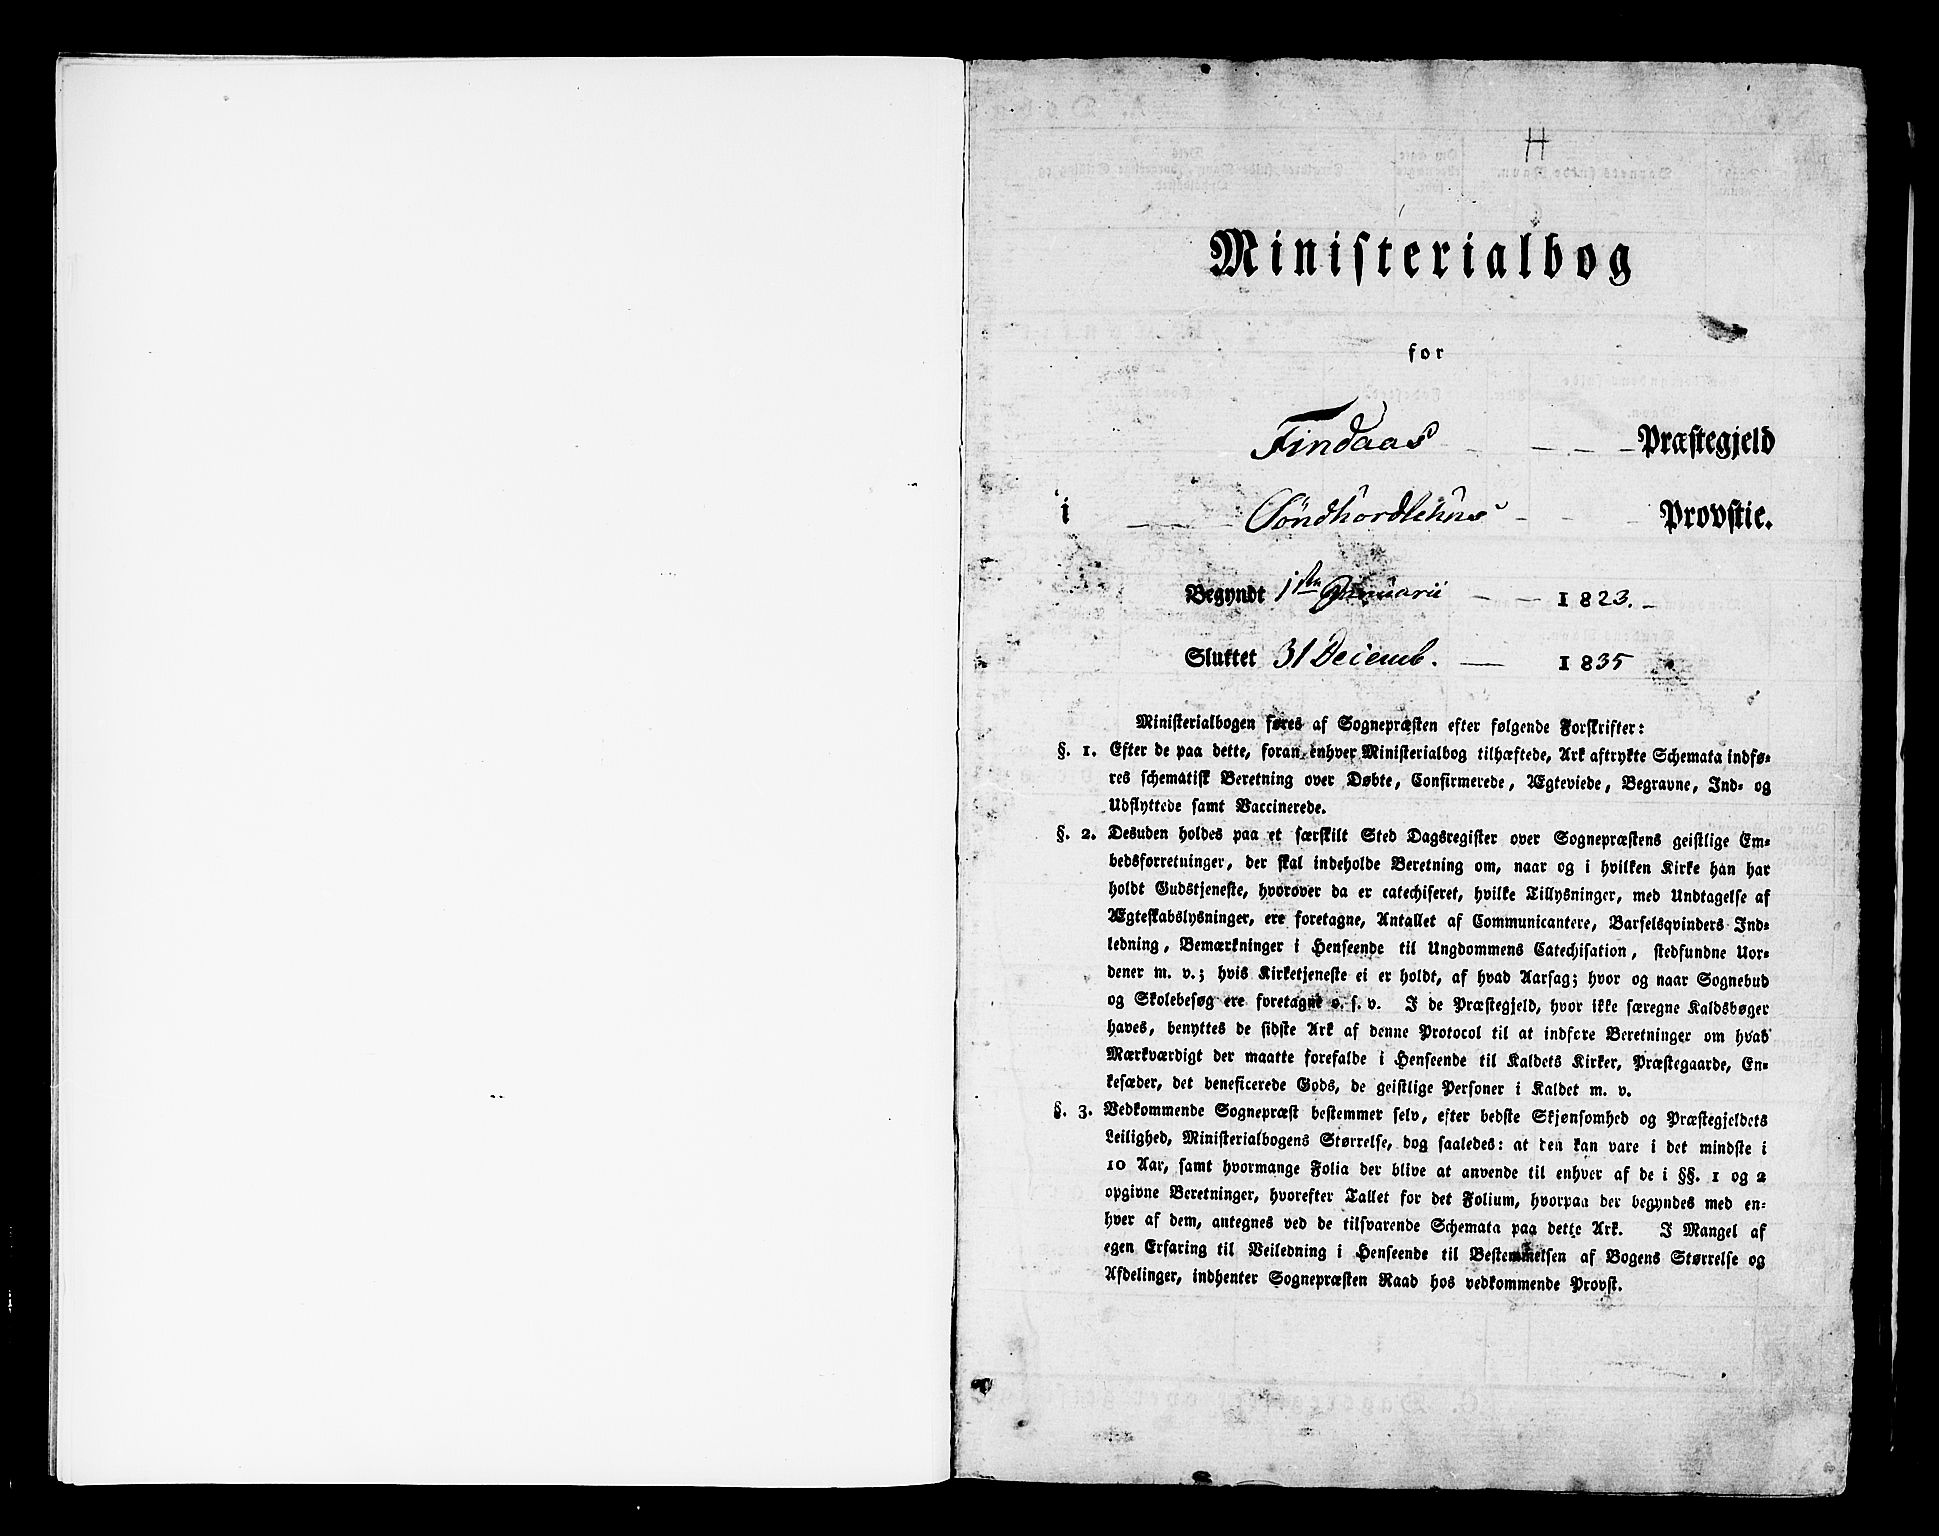 H
Ministerialbog
for
Findaas - - - Præstegjeld
i - - Söndhordlehns - - Provstie.
Begyndt 1ste Januarii - - 1823. -
Sluttet 31 Decemb. - 1835
Ministerialbogen føres af Sognepræsten efter følgende Forskrifter:
§. 1. Efter de paa dette, foran enhver Ministerialbog tilhæftede, Ark aftrykte Schemata indfø-
res schematisk Beretning over Døbte, Confirmerede, Ægteviede, Begravne, Ind- og
Udflyttede samt Vaccinerede.
§. 2. Desuden holdes paa et særskilt Sted Dagsregister over Sognepræstens geistlige Em-
bedsforretninger, der skal indeholde Beretning om, naar og i hvilken Kirke han har
holdt Gudstjeneste, hvorover da er catechiseret, hvilke Tillysninger, med Undtagelse af
Ægteskabslysninger, ere foretagne, Antallet af Communicantere, Barselsqvinders Ind-
ledning, Bemærkninger i Henseende til Ungdommens Catechisation, stedfundne Uor-
dener m. v.; hvis Kirketjeneste ei er holdt, af hvad Aarsag; hvor og naar Sognebud
og Skolebesøg ere foretagne o. s. v. I de Præstegjeld, hvor ikke særegne Kaldsbøger
haves, benyttes de sidste Ark af denne Protocol til at indføre Beretninger om hvad
Mærkværdigt der maatte forefalde i Henseende til Kaldets Kirker, Præstegaarde, En-
kesæder, det beneficerede Gods, de geistlige Personer i Kaldet m. v.
§. 3. Vedkommende Sognepræst bestemmer selv, efter bedste Skjønsomhed og Præstegjeldets
Leilighed, Ministerialbogens Størrelse, dog saaledes: at den kan vare i det mindste i
10 Aar, samt hvormange Folia der blive at anvende til enhver af de i §§. 1 og 2
opgivne Beretninger, hvorefter Tallet for det Folium, hvorpaa der begyndes med en-
hver af dem, antegnes ved de tilsvarende Schemata paa dette Ark. I Mangel af
egen Erfaring til Veiledning i Henseende til Bestemmelsen af Bogens Størrelse og
Afdelinger, indhenter Sognepræsten Raad hos vedkommende Provst.